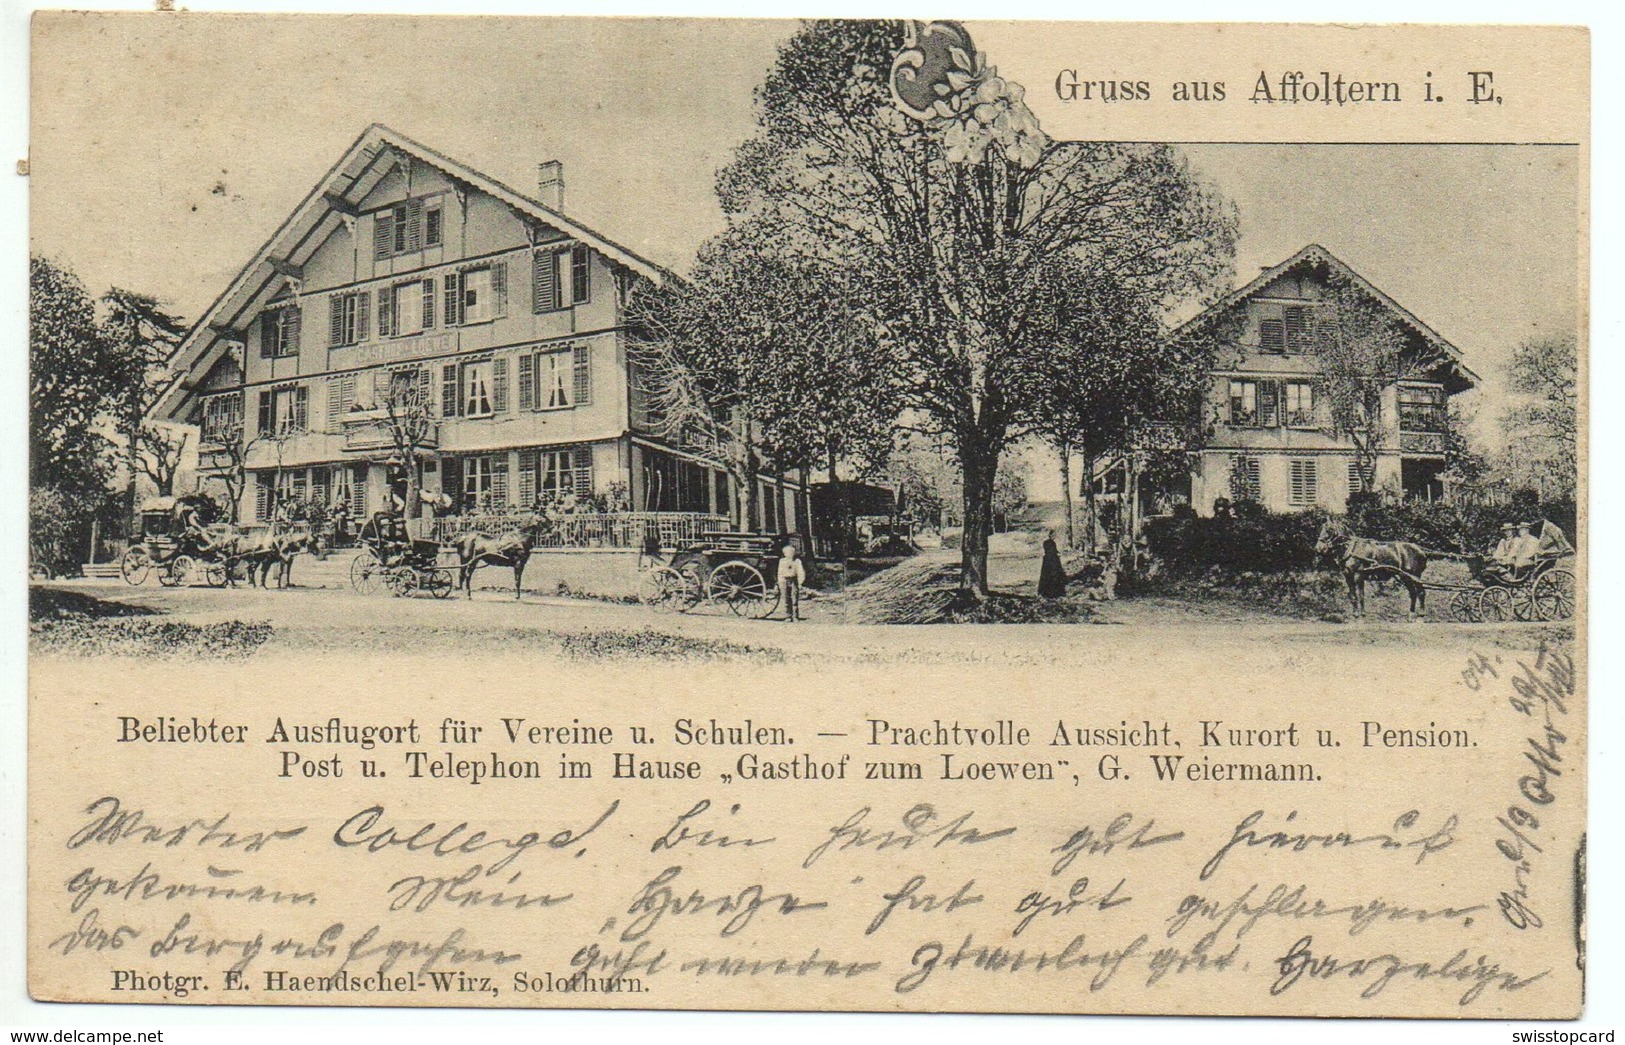 Gruss aus Affoltern i. E.
GASTHOF z. LOEWEN
Beliebter Ausflugort für Vereine u. Schulen. — Prachtvolle Aussicht, Kurort u. Pension.
Post u. Telephon im Hause „Gasthof zum Loewen“, G. Weiermann.
Werter College! Bin heute gut hierauf
gekom̅en. Mein „Herze“ hat gut geschlagen.
das Bergaufgehen geht wieder ziemlich gut. Herzelige
Photgr. E. Haendschel-Wirz, Solothurn.
Otto
04.
swisstopcard
delcampe.net